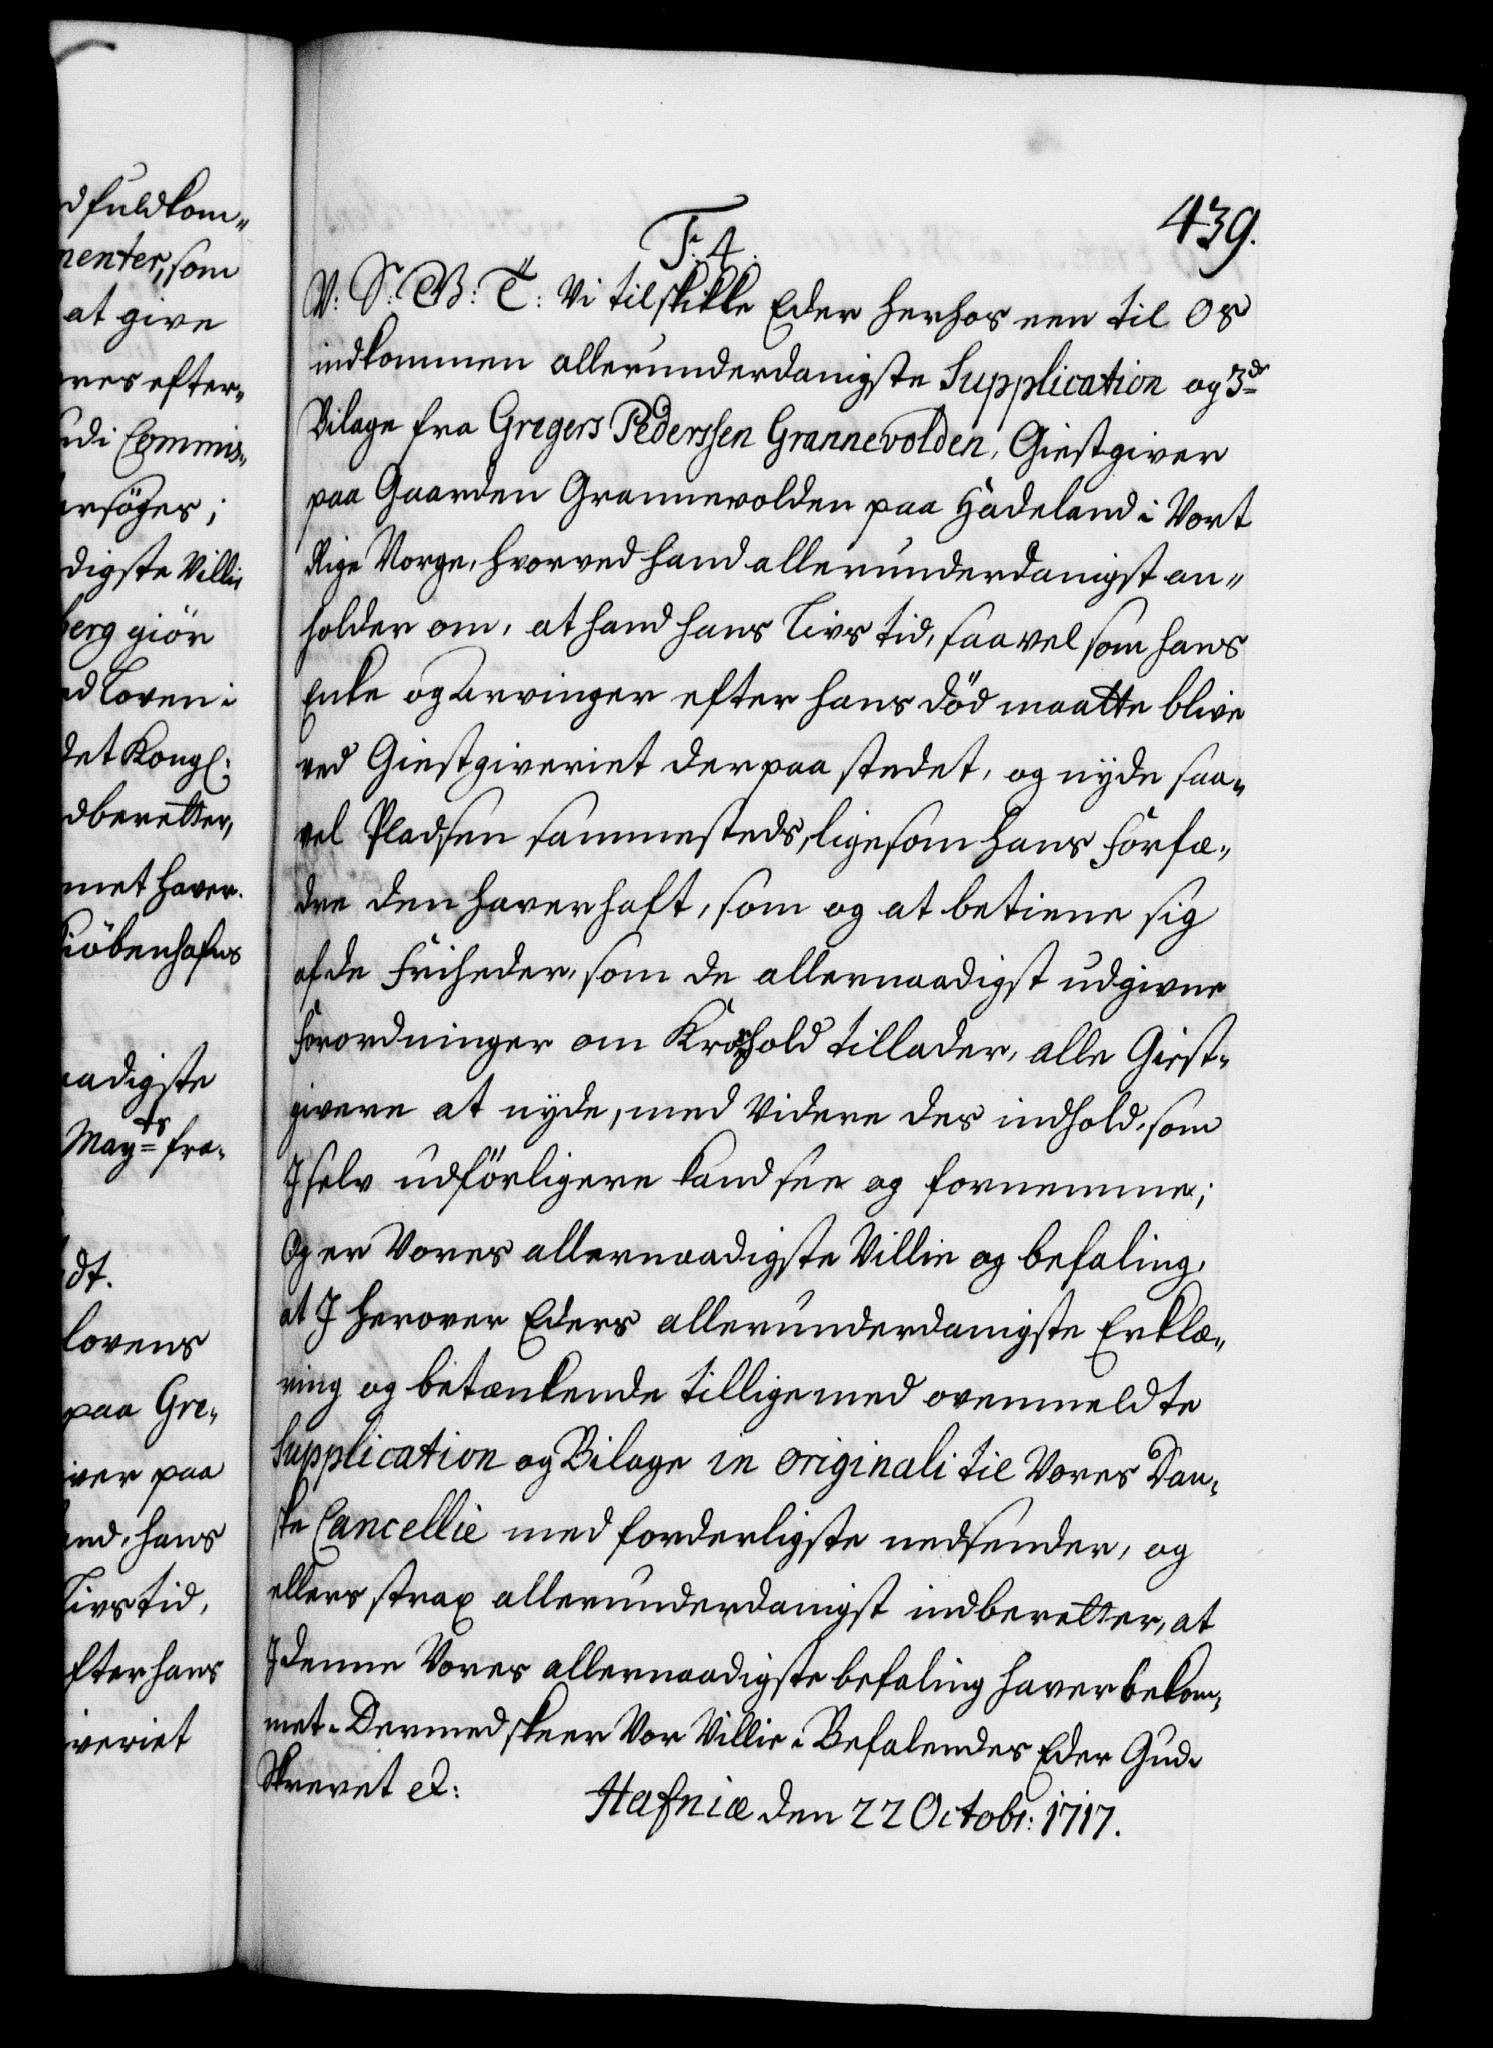 dfuldkom„
nenter, som
at give
ores efter„
udi Commis„
ersöges;
digste Villie
berg giör
ed Loven i
det Kongl:
dberetter,
met haver.
Kiöbenhafns
aadigste
Mayts fra„
dt.
lovens
paa Gre„
iver paa
and, hans
Livs tid,
fter hans
iveriet
439.
F. 4.
W: S: G: T: Vi tilskikke Eder herhos een til Os
indkommen allerunderdanigste Supplication og 3de
Bilage fra Gregers Pederssen Grannevolden, Giestgiver
paa Gaarden Grannevolden paa Hadeland i Vort
Rige Norge, hvorved hand allerunderdanigst an„
holder om, at hand hans Livs tid, saavel som hans
Enke og Arvinger efter hans död maatte blive
ved Giestgiveriet der paa stedet, og nyde saa„
vel Pladsen sammesteds, ligesom hans Forfæ„
dre den haver haft, som og at betiene sig
af de Friheder, som de allernaadigst udgivne
Forordninger om Kroehold tillader, alle Giest„
givere at nyde, med Videre des indhold, som
I selv udförligere kand see og fornemme;
Og er Vores allernaadigste Villie og befaling,
at I herover Eders allerunderdanigste Erklæ„
ring og betænkende tilligemed ovenmeldte
Supplication og Bilage in originali til Vores Dan„
ske Cancellie med forderligste nedsender, og
ellers strax allerunderdanigst indberetter, at
I denne Vores allernaadigste befaling haver bekom„
met. Dermed skeer Vor Villie. Befalendes Eder Gud.
Skrevet et:
Hafniæ den 22 Octobr: 1717.